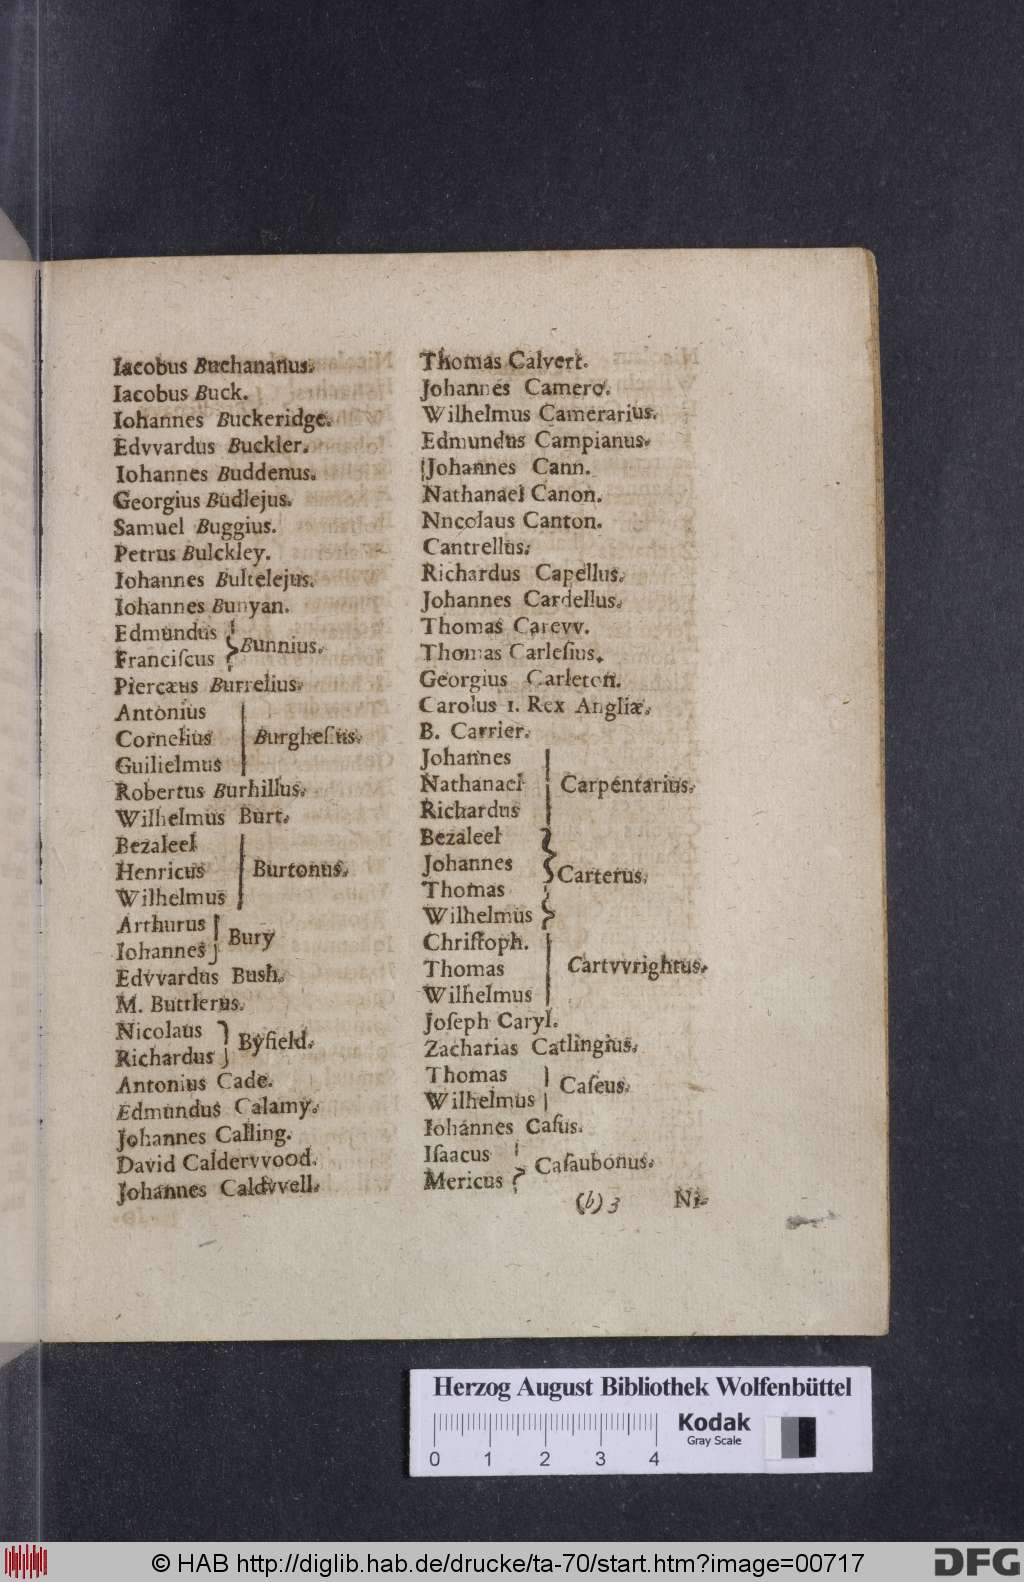 Iacobus Buchananus.
Iacobus Buck.
Iohannes Buckeridge.
Edvvardus Buckler.
Iohannes Buddenus.
Georgius Budlejus.
Samuel Buggius.
Petrus Bulckley.
Iohannes Bultelejus.
Iohannes Bunyan.
Edmundus
Franciſcus
Bunnius.
Piercæus Burrelius.
Antonius
Cornelius
Guilielmus
Burgheſius.
Robertus Burhillus.
Wilhelmus Burt.
Bezaleel
Henricus
Wilhelmus
Burtonus.
Arthurus
Iohannes
Bury
Edvvardus Bush.
M. Buttlerus.
Nicolaus
Richardus
Byfield.
Antonius Cade.
Edmundus Calamy.
Johannes Calling.
David Caldervvood.
Johannes Caldvvell.
Thomas Calvert.
Johannes Camero.
Wilhelmus Camerarius.
Edmundus Campianus.
Johannes Cann.
Nathanael Canon.
Nncolaus Canton.
Cantrellus.
Richardus Capellus.
Johannes Cardellus.
Thomas Carevv.
Thomas Carleſius.
Georgius Carleton.
Carolus 1. Rex Angliæ.
B. Carrier.
Johannes
Nathanael
Richardus
Carpentarius.
Bezaleel
Johannes
Thomas
Wilhelmus
Carterus.
Chriſtoph.
Thomas
Wilhelmus
Cartvvrightus.
Joſeph Caryl.
Zacharias Catlingius.
Thomas
Wilhelmus
Caſeus.
Iohannes Caſus.
Iſaacus
Mericus
Caſaubonus.
(b) 3
Ni-
Herzog August Bibliothek Wolfenbüttel
Kodak
Gray Scale
0 1 2 3 4
© HAB http://diglib.hab.de/drucke/ta-70/start.htm?image=00717
DFG